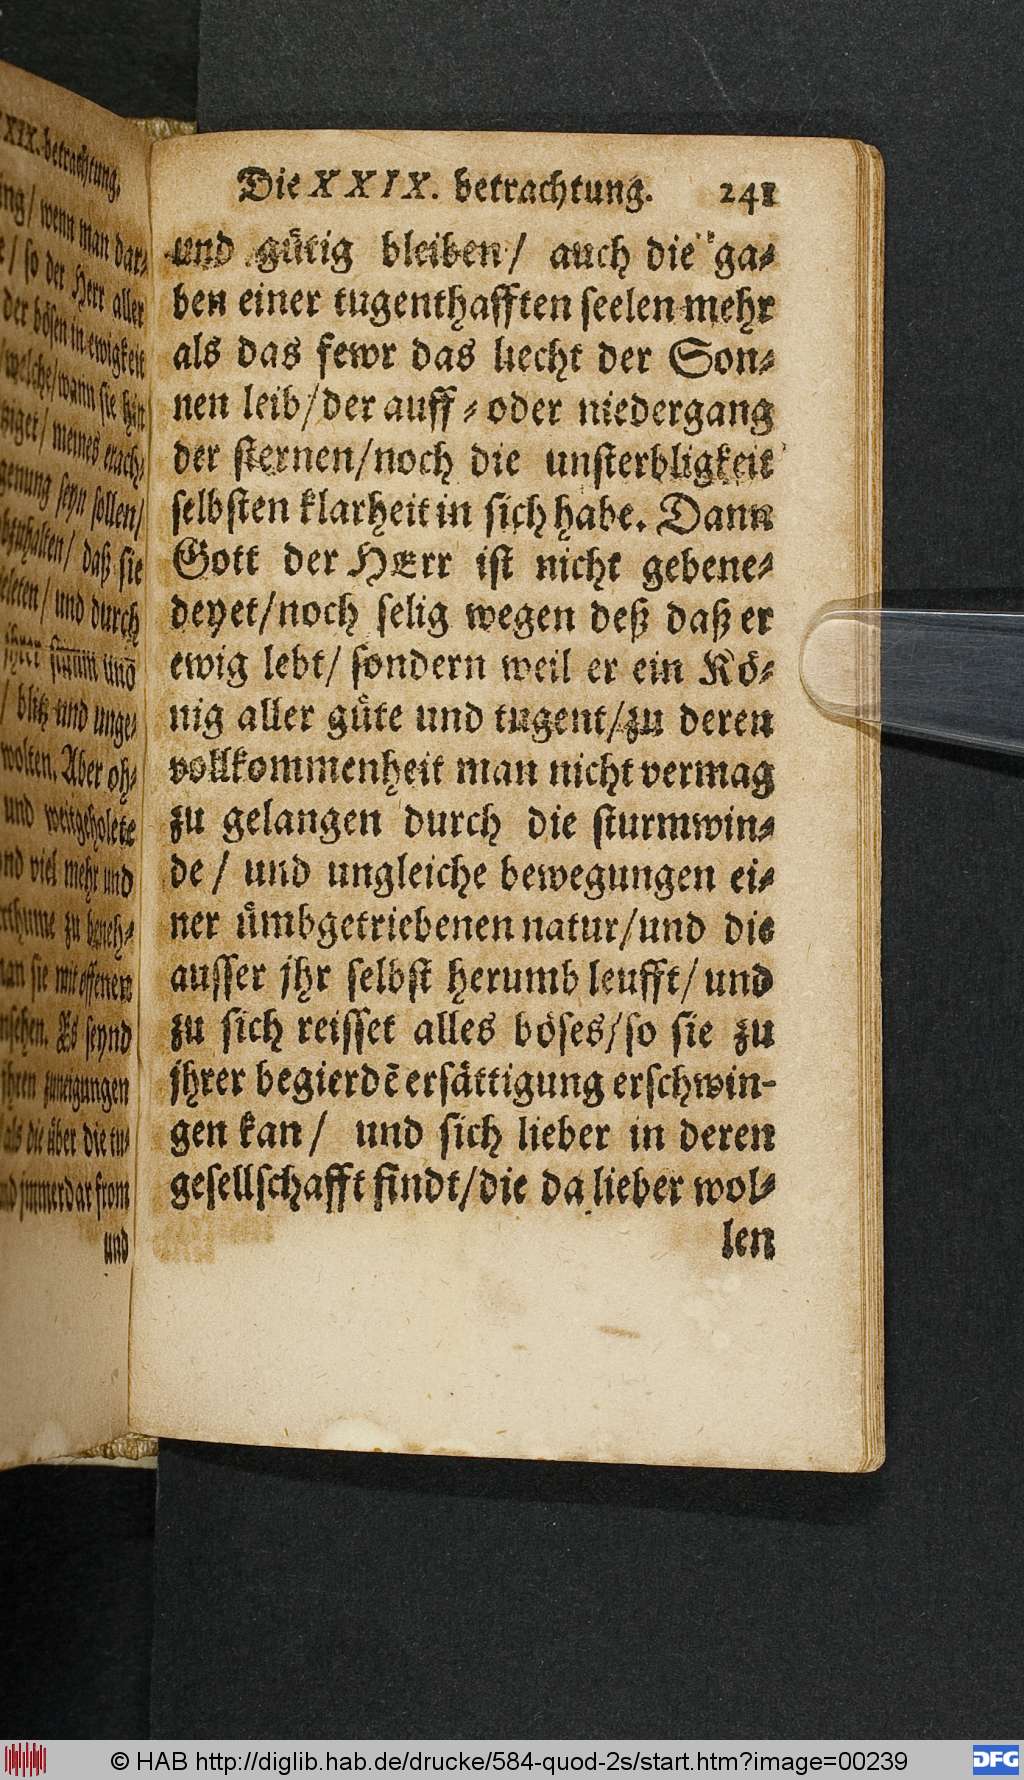 XXIX. betrachtung.
wenn man dar⸗
/ so der Herr aller
der bösen in ewigkeit
welche/wann sie hin
meines erach⸗
genung seyn sollen/
daß sie
und durch
ihrer stimm und
/ blitz und unge⸗
wolten. Aber oh⸗
und weitgeholete
und viel mehr und
zu beneh⸗
man sie mit offenen
Es seynd
ihren zuneigungen
als die über die tu⸗
und jmmerdar from
und
Die XXIX. betrachtung. 241
und gütig bleiben/ auch die ga⸗
ben einer tugenthafften seelen mehr
als das fewr das liecht der Son⸗
nen leib/der auff⸗ oder niedergang
der sternen/noch die unsterbligkeit
selbsten klarheit in sich habe. Dann
Gott der HErr ist nicht gebene⸗
deyet/noch selig wegen deß daß er
ewig lebt/ sondern weil er ein Kö⸗
nig aller güte und tugent/zu deren
vollkommenheit man nicht vermag
zu gelangen durch die sturmwin⸗
de/ und ungleiche bewegungen ei⸗
ner ümbgetriebenen natur/und die
ausser jhr selbst herumb leufft/ und
zu sich reisset alles böses/so sie zu
jhrer begierdẽ ersättigung erschwin-
gen kan/ und sich lieber in deren
gesellschafft findt/die da lieber wol⸗
len
© HAB http://diglib.hab.de/drucke/584-quod-2s/start.htm?image=00239
DFG